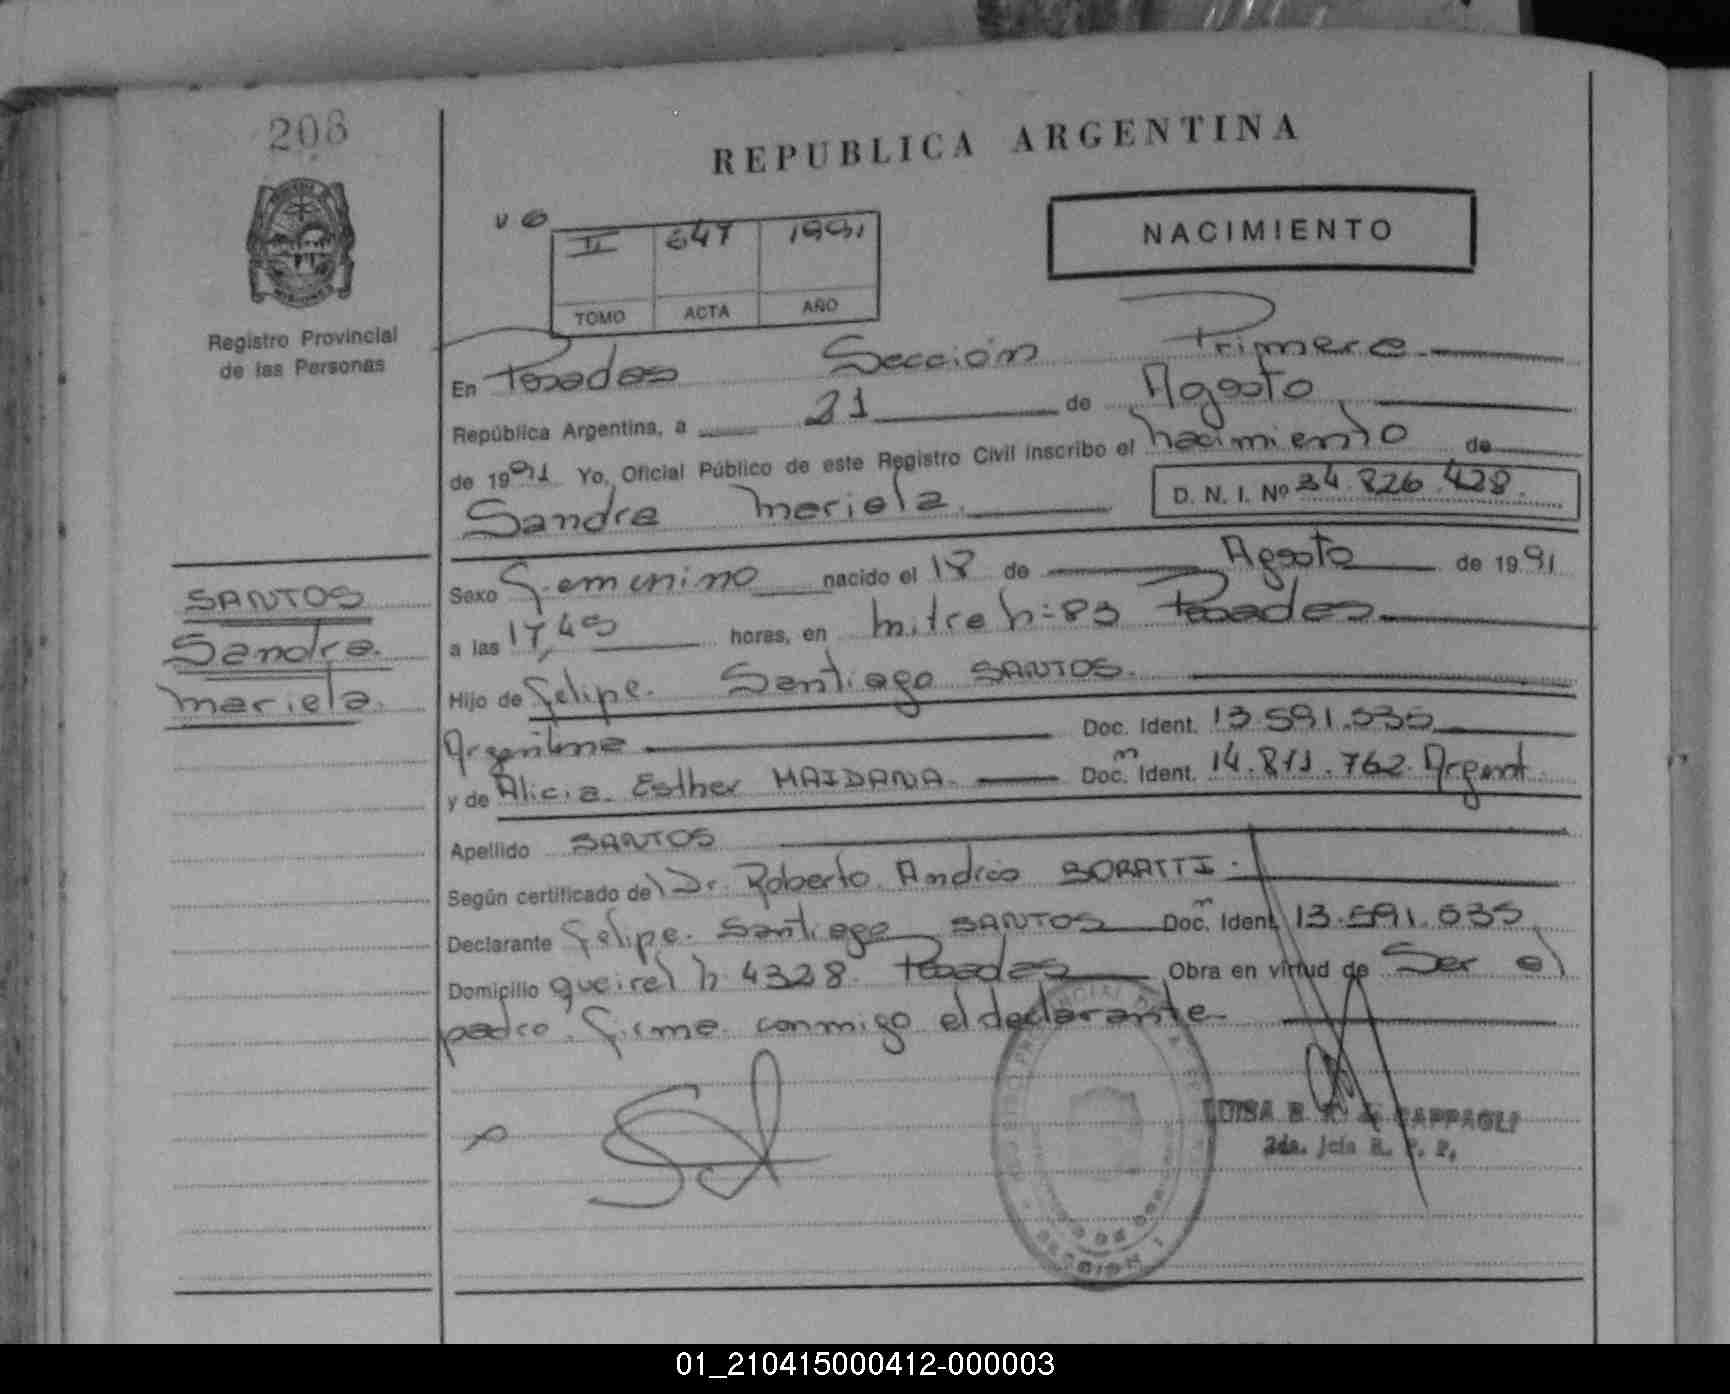 208
REPUBLICA ARGENTINA
NACIMIENTO
II 647 1991
TOMO ACTA AÑO
Registro Provincial
de las Personas
En Posadas Sección Primera
República Argentina, a 21 de Agosto
de 1991 Yo, Oficial Público de este Registro Civil inscribo el nacimiento de
Sandra Mariela. D. N. I. Nº 34.826.428.
SANTOS
Sandra
Mariela.
Sexo Femenino nacido el 18 de Agosto de 1991
a las 17,45 horas, en Mitre n=83 Posadas
Hijo de Felipe Santiago SANTOS.
Argentina Doc. Ident. 13.591.535
y de Alicia Esther MAIDANA Doc. Ident. 14.811.762 Argent.
Apellido SANTOS
Según certificado del Dr. Roberto Andrés BORATTI.
Declarante Felipe Santiago SANTOS Doc. Ident. 13.591.535
Domicilio Queirel n 4328. Posadas Obra en virtud de Ser el
padre. Firma conmigo el declarante
LUISA B. CAPPAGLI
2da. Jefa R. P. P.
01_210415000412-000003